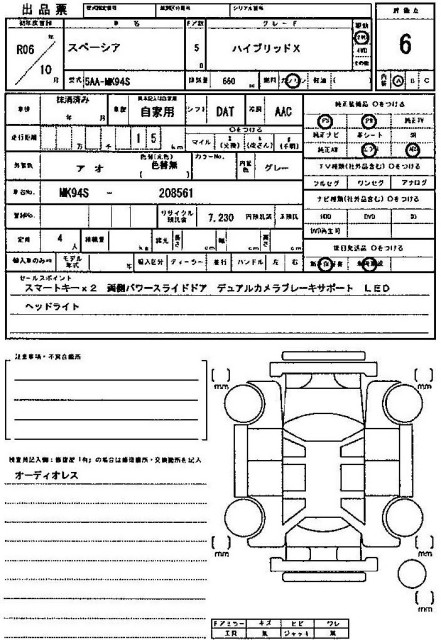 出品票
車名 ドア数 グレード 評価点
初年度登録
R06年
10月
スペーシア
5
D
ハイブリッドX
2WD
4WD
その他
6
型式 5AA-MK94S 排気量 660 cc 燃料 ガソリン 軽油 ( )
内装 A B C
車検 抹消済み 年 月 車歴 自家用 シフト DAT 冷房 AAC
走行距離 万 千 15 km
○をつける
マイル $ (交換) * (改ざん) # (不明)
外装色 アオ 色替(元色) 色替無 ( ) カラーNo. 内装色 グレー
車台No. MK94S - 208561
登録No. リサイクル預託金 7,230 円
定員 4 人 積載量 kg 長さ cm 幅 cm 高さ cm
輸入車のみ モデル年式 年 輸入区分 ディーラー 並行 ハンドル 左 右
純正装備品 ○をつける
PS PW 純正TV
純正ナビ 革シート SR
純正AW エアB ABS
TV種類(社外品含む) ○をつける
フルセグ ワンセグ アナログ
ナビ種類(社外品含む) ○をつける
HDD DVD SD
DVD再生可
後日発送品 ○をつける
セールスポイント
スマートキー×2 両側パワースライドドア デュアルカメラブレーキサポート LED
ヘッドライト
注意事項・不具合箇所
検査員記入欄:修復歴「有」の場合は修復箇所・交換箇所を記入
オーディオレス
[ ] mm
[ ] mm
[ ] mm
[ ] mm
ドアミラー キズ ヒビ ワレ
工具 無 ジャッキ 無